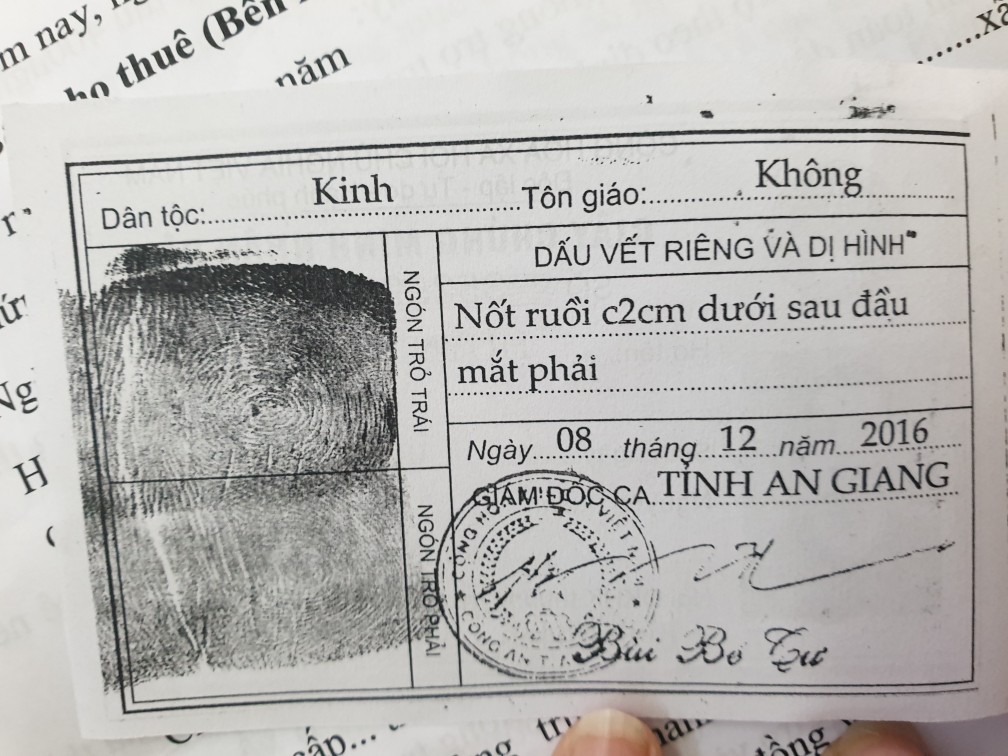 m nay,
ho thuê (Bên
năm
Dân tộc: Kinh Tôn giáo: Không
DẤU VẾT RIÊNG VÀ DỊ HÌNH
Nốt ruồi c2cm dưới sau đầu
mắt phải
NGÓN TRỎ TRÁI
NGÓN TRỎ PHẢI
Ngày 08 tháng 12 năm 2016
GIÁM ĐỐC CA TỈNH AN GIANG
CÔNG AN T.
Bùi Bé Tư